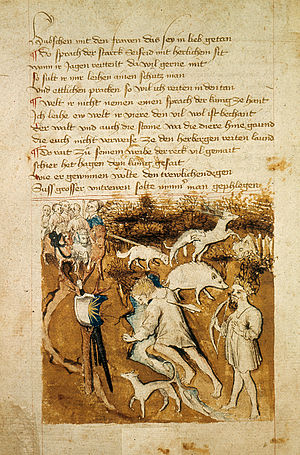 Hubschen mit den frawen das sey in lieb getan
Do sprach der starck Seifrid mit herlichem sit
wann ir Jagen reittent da wil gerne mit
So sult ir mir leihen ainen schutzman
Und ettlichen pracken so wil ich reiten in den tan
Welt ir nicht nemen einen sprach der kunig ze hant
Ich leihe ew welt ir viere den vil wol ist bechant
Der walt und auch die steine wa die diere hine gaund
die euch nicht verweise ze den herbergen reiten laund
Do rait zu seinem weibe der reck vil gemait
Schier het hagen dem kunig gesait
wie er gewinnen wolte den
Suss grosser untrewen solte man gephlegen